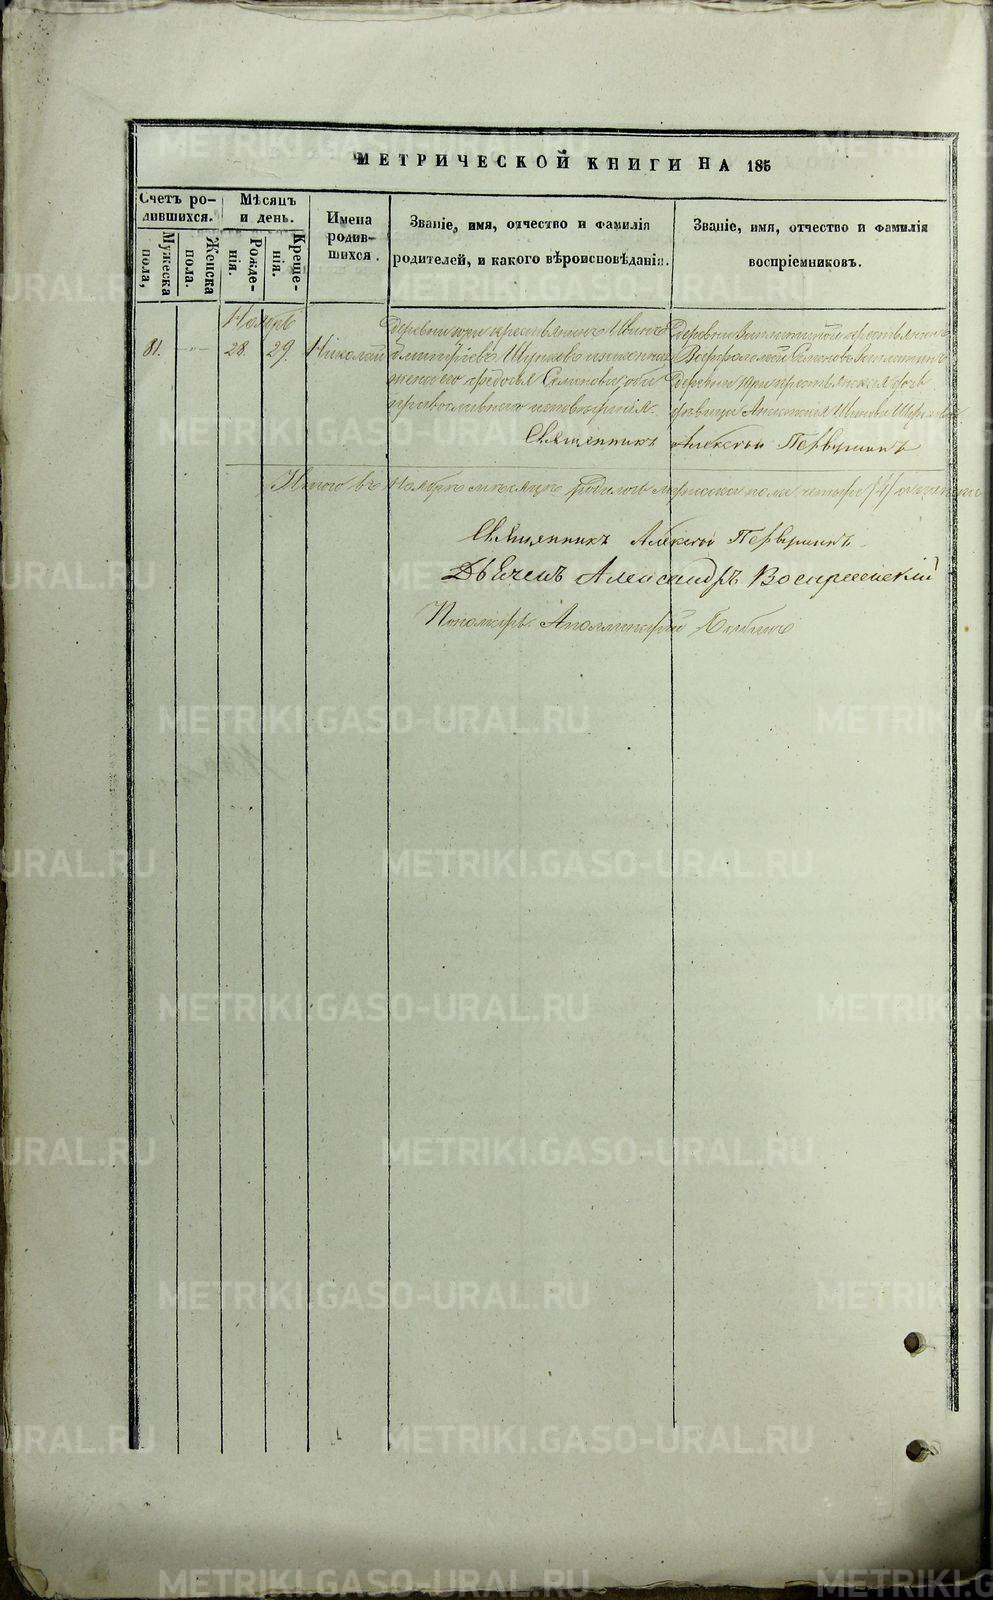 МЕТРИЧЕСКОЙ КНИГИ НА 185
Счетъ ро-
дившихся.
Мужеска
пола,
Женска
пола.
Мѣсяцъ
и день.
Рожде-
нія.
Креще-
нія.
Имена
родив-
шихся.
Званіе, имя, отчество и фамилія
родителей, и какого вѣроисповѣданія.
Званіе, имя, отчество и фамилія
воспріемниковъ.
Ноябрь
81.
28
29
Николай
деревни крестьянинъ Иванъ
Димитріевъ и законная
жена его Федосья Семенова, оба
православнаго исповѣданія.
деревни крестьянинъ
деревни крестьянская дочь
дѣвица Анастасія Иванова
Священникъ Алексѣй Первушинъ
Итого въ Ноябрѣ мѣсяцѣ родилось мужеска пола четыре /4/
Священникъ Алексѣй Первушинъ
Дьячекъ Александръ Воскресенскій
Пономарь Аполлинарій Бабинъ
METRIKI.GASO-URAL.RU